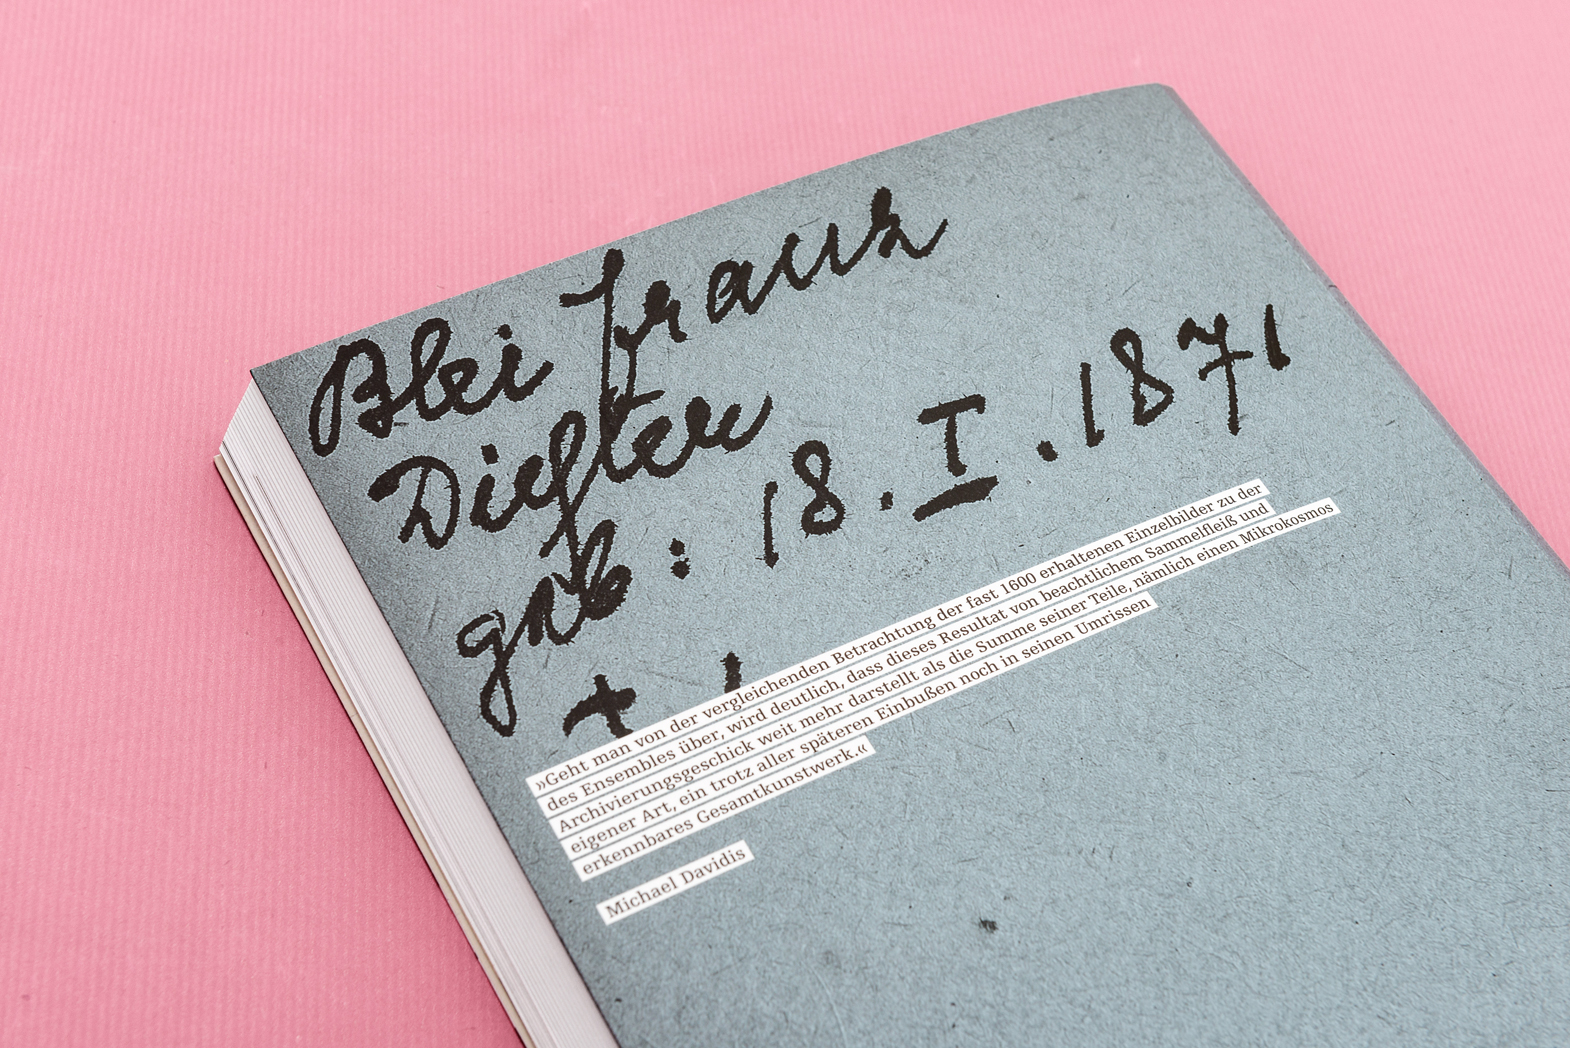 Blei Franz
Dichter
geb: 18. I. 1871
+
»Geht man von der vergleichenden Betrachtung der fast 1600 erhaltenen Einzelbilder zu der
des Ensembles über, wird deutlich, dass dieses Resultat von beachtlichem Sammelfleiß und
Archivierungsgeschick weit mehr darstellt als die Summe seiner Teile, nämlich einen Mikrokosmos
eigener Art, ein trotz aller späteren Einbußen noch in seinen Umrissen
erkennbares Gesamtkunstwerk.«
Michael Davidis